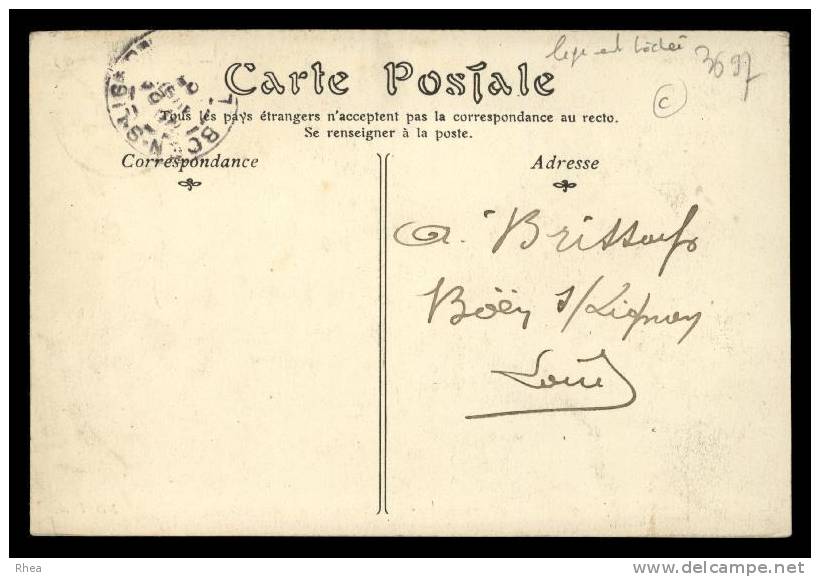 3697
C
Carte Postale
Tous les pays étrangers n'acceptent pas la correspondance au recto.
Se renseigner à la poste.
Correspondance
Adresse
Boën s/Lignon
Loire
Rhea
www.delcampe.net